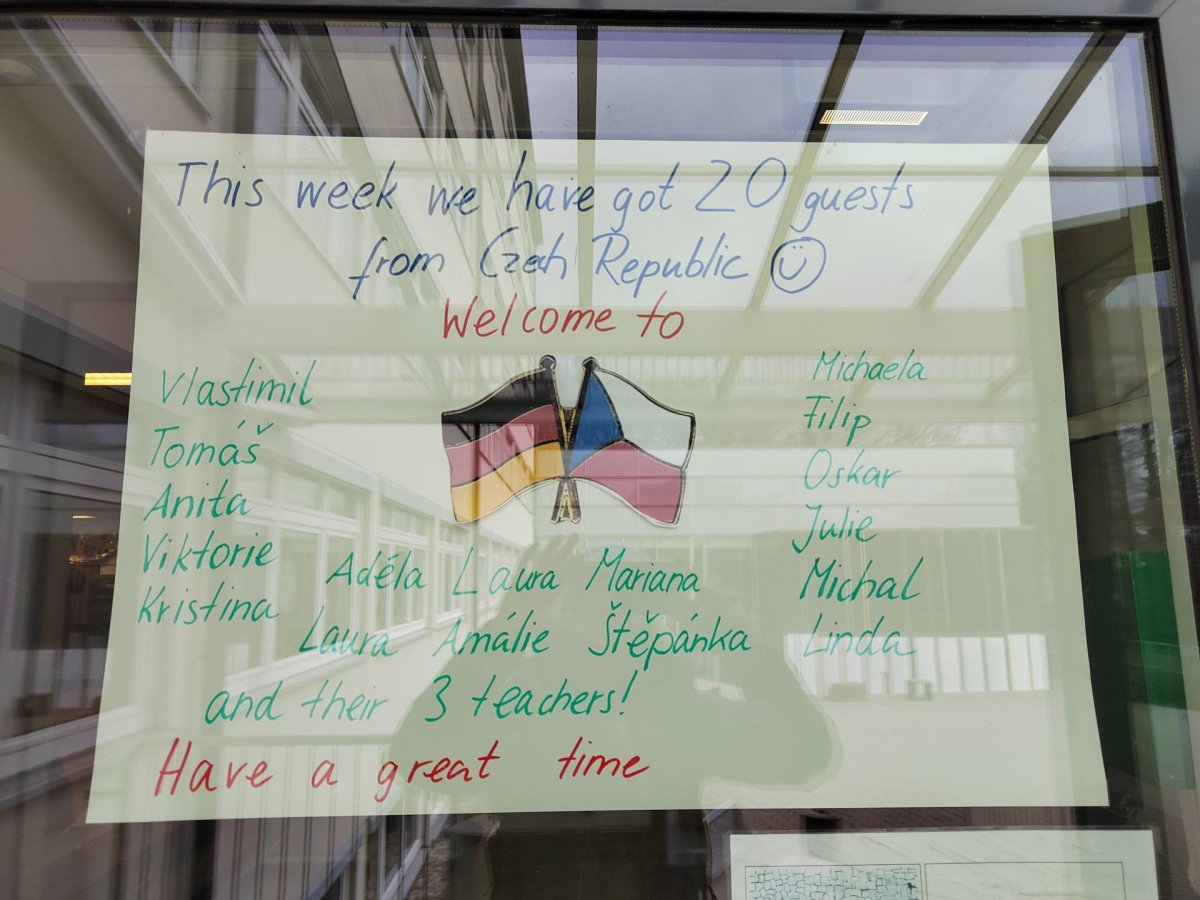 This week we have got 20 guests
from Czech Republic
Welcome to
Vlastimil
Tomáš
Anita
Viktorie
Kristina
Michaela
Filip
Oskar
Julie
Michal
Linda
Adéla Laura Mariana
Laura Amálie Štěpánka
and their 3 teachers!
Have a great time